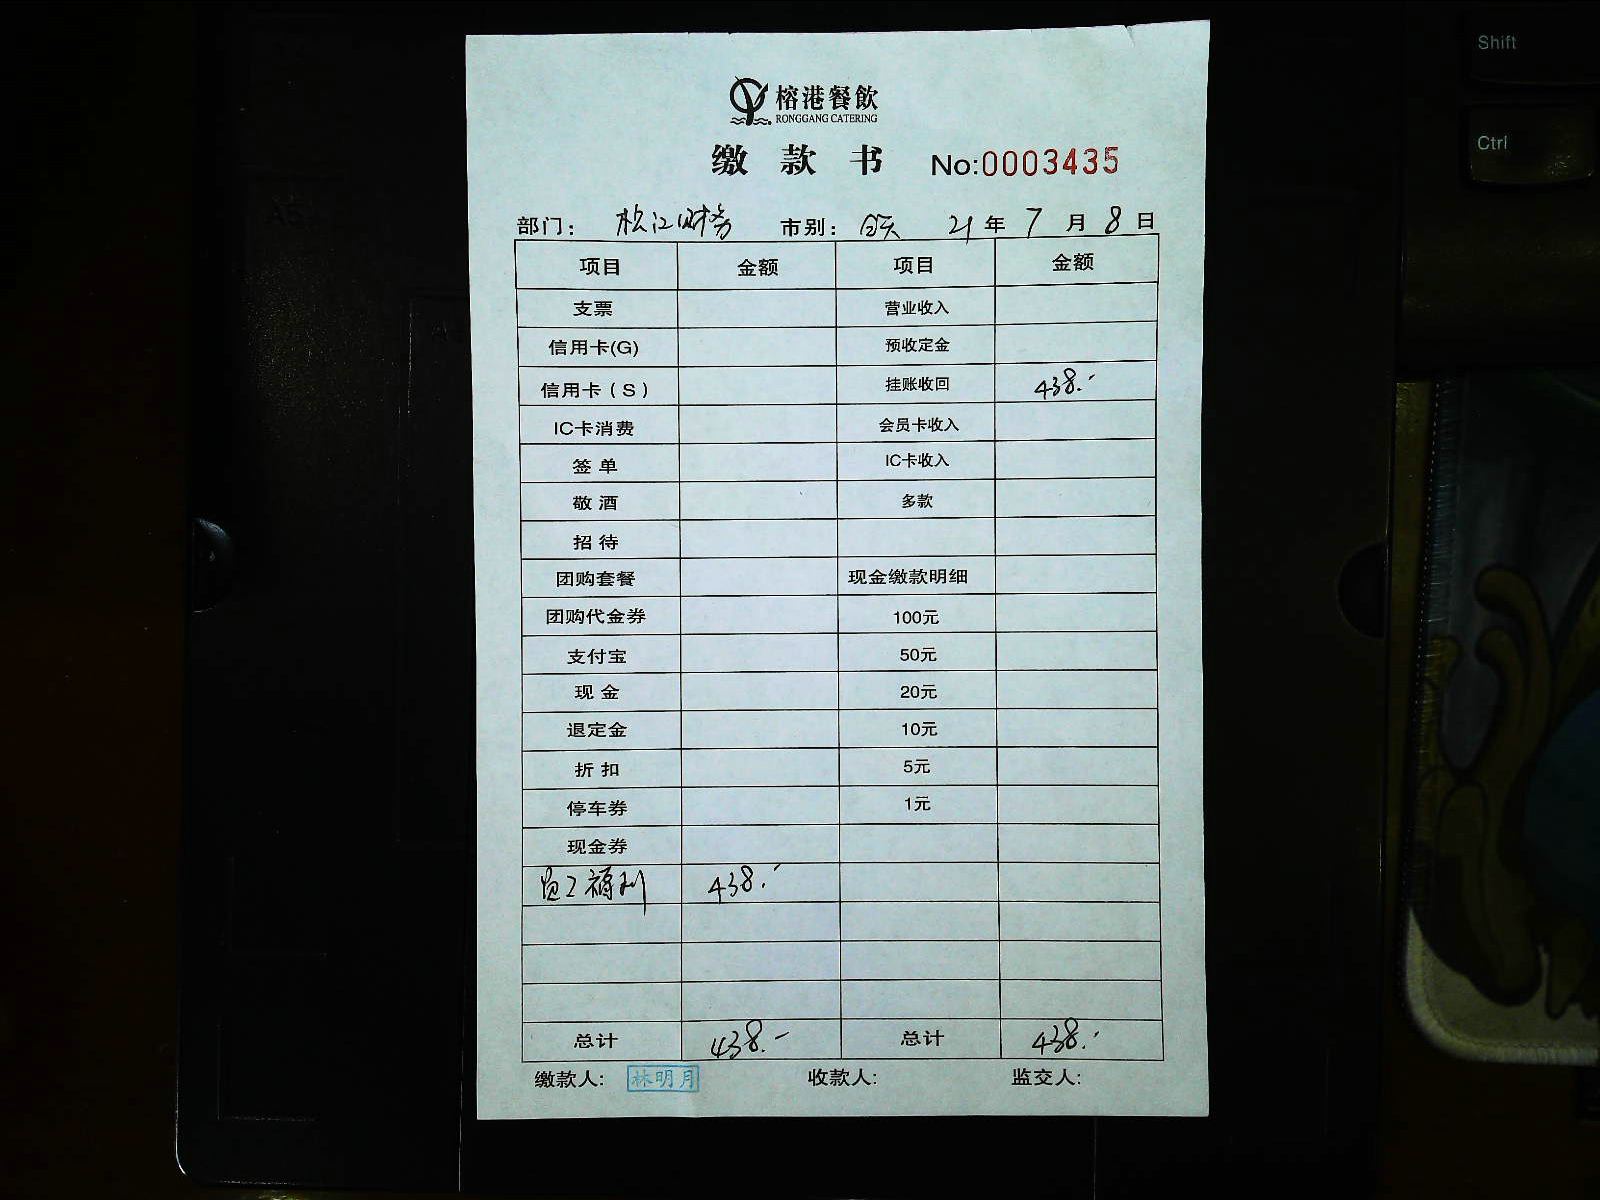 榕港餐飲
RONGGANG CATERING
缴款书 No:0003435
部门： 松江财务 市别： 全天 21年7月8日
项目 金额 项目 金额
支票 营业收入
信用卡(G) 预收定金
信用卡（S） 挂账收回 438.-
IC卡消费 会员卡收入
签单 IC卡收入
敬酒 多款
招待
团购套餐 现金缴款明细
团购代金券 100元
支付宝 50元
现金 20元
退定金 10元
折扣 5元
停车券 1元
现金券
员工福利 438.-
总计 438.- 总计 438.-
缴款人: 林明月 收款人: 监交人:
Shift
Ctrl